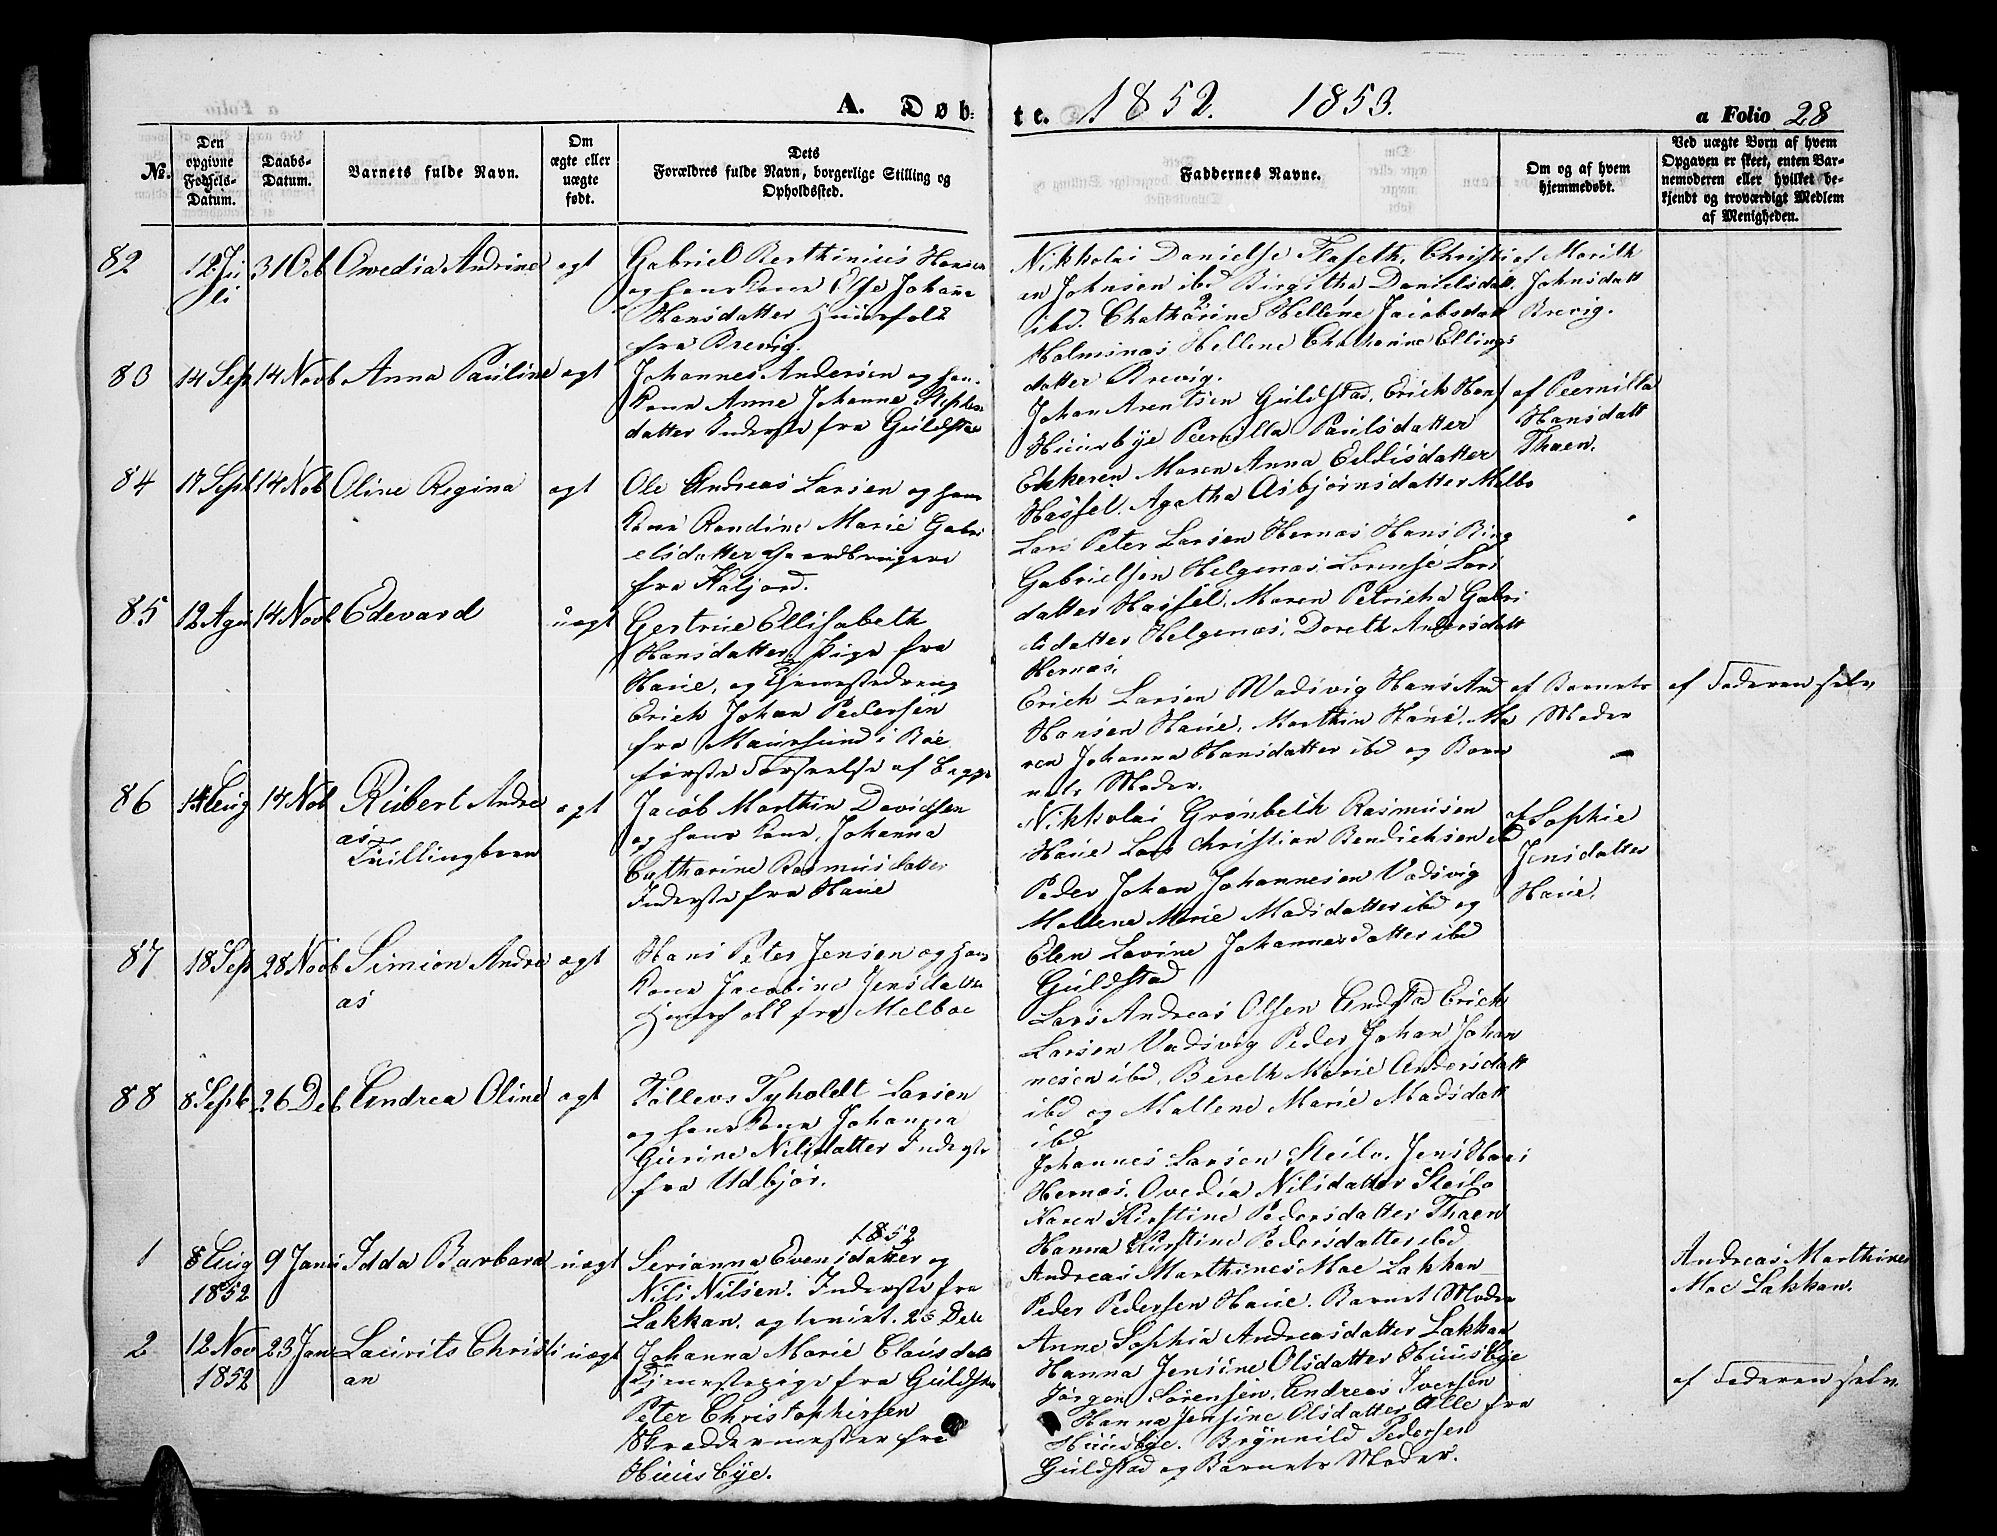 A. Døb-
te. 1852. 1853.
a Folio 28
No.
Den opgivne Fødsels-Datum.
Daabs-Datum.
Barnets fulde Navn.
Om ægte eller uægte født.
Dets Forældres fulde Navn, borgerlige Stilling og Opholdssted.
Faddernes Navne.
Om og af hvem hjemmedøbt.
Ved uægte Børn af hvem Opgaven er skeet, enten Barnemoderen eller hvilket bekjendt og troværdigt Medlem af Menigheden.
82 12 Ju 31 Octb Amedia Andrine ægt
li
Gabriel Berthinius Hansen
og hans Kone Else Johanne
Hansdatter Huusfolk
fra Brevig.
Nikkolai Danielse Flaseth, Christi
an Johnsen ibd Birgitha Danielsdatt,
ibd. Chatharine Hellene Jacobsdatt
Holmsnæs Hellene Chatharine Ellings
datter Brevig.
af Marith
Johnsdatt
Brevig.
83 14 Sept 14 Novb Anna Pauline ægt
Johannes Andersen og han.
Kone Anne Johanna Stephens
datter Inderste fra Guldstad
Johan Arentsen Guldstad, Erich Hans
Huusbye Peernilla Paulsdatter
Ekkeren Maren Anna Eddisdatter
Hassel, Agatha Asbjørnsdatter Melbo
af Peernilla
Hansdatt
Thaen.
84 17 Sept 14 Nob Oline Regina ægt
Ole Andreas Larsen og hans
Kone Randine Marie Gabri
elsdatter Gaardbrugere
fra Kaljord.
Lars Peter Larsen Hernæs Hans Ring
Gabrielsen Helgenæs, Lorense Lars
datter Hassel, Maren Petricha Gabri
elsdatter Helgenæs, Doreth Andersdatt
Hernæs.
85 12 Agu 14 Novb Edevard uægt
Gertrue Ellisabeth
Hansdatter, Pige fra
Haue, og Tjenestedreng
Erich Johan Pedersen
fra Maursund i Bøe
første Forseelse af begge
Erich Larsen Wadsvig Hans And
Hansen Haue, Marthin Haue, Ma
ren Johanna Hansdatter ibd og Barn
nets Moder.
af Barnets
Moder
af Faderen selv
86 14 Aug 14 Nob Rubert Andre ægt
as
Tvillingbarn
Jacob Marthin Davidsen
og hans Kone, Johanna
Catharine Rasmusdatter
Inderste fra Haue
Nikkolai Grønbeth Rasmusen
Haue Lars Christian Bendichsen ibd
Peder Johan Johannesen Vadsvig
Mallene Marie Madsdatter ibd og
Elen Lovine Johannesdatter ibd
Guldstad
af Sophie
Jensdatter
Haue.
87 18 Sept 28 Novb Simion Andre ægt
as
Hans Peter Jensen og hans
Kone Jacobine Jensdatter
Huusfolk fra Melboe
Lars Andreas Olsen Andstad Erich
Larsen Vadsvig Peder Johan Johan
nesen ibd, Bereth Marie Andersdatt
ibd og Mallene Marie Madsdatt
ibd
88 8 Septe 26 Deb Andrea Oline ægt
Tollevs Tyholdt Larsen
og hans Kone Johanna
Gurine Nilsdatter Inderste
fra Udbjør.
Johannes Larsen Steilo. Jens Hans
Hernæs. Ovedia Nilsdatter Steilo
Karen Kirstine Pedersdatter Thaen
Hanna Kirstine Pedersdatter ibd
1 8 Aug 9 Janu Idda Barbara uægt
1852
1852
Serianna Evensdatter og
Nils Nilsen. Inderste fra
Lakkan, og levirt. 26 Deb
Andreas Marthines Moe Lakkan
Peder Pedersen Haue. Barnet Moder
Anne Sophia Andreasdatter Lakkan
Andreas Marthines
Moe Lakkan.
2 12 Nov 23 Jan Laurits Christi uægt
1852 an
Johanna Marie Clausdatt
Tjenestepige fra Guldstad
Peter Christophersen
Skreddermester fra
Huusbye.
Hanna Jensine Olsdatter Huusbye
Jørgen Sørensen, Andreas Iversen
Hanna Jensine Olsdatter Alle fra
Huusbye. Brynnild Pedersen
Guldstad og Barnets Moder.
af Faderen selv.